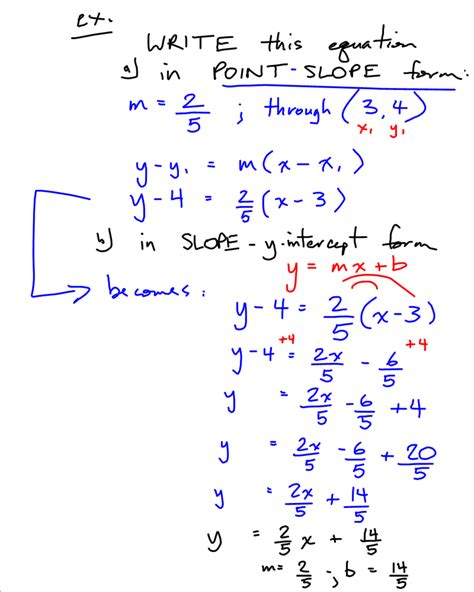 ex.
WRITE this equation
a) in POINT-SLOPE form:
m = 2/5 ; through (3, 4)
x₁ y₁
y - y₁ = m(x - x₁)
y - 4 = 2/5 (x - 3)
b) in SLOPE - y-intercept form
y = mx + b
becomes: y - 4 = 2/5 (x - 3)
y - 4 +4 = 2x/5 - 6/5 +4
y = 2x/5 - 6/5 + 4
y = 2x/5 - 6/5 + 20/5
y = 2x/5 + 14/5
y = 2/5 x + 14/5
m = 2/5 ; b = 14/5